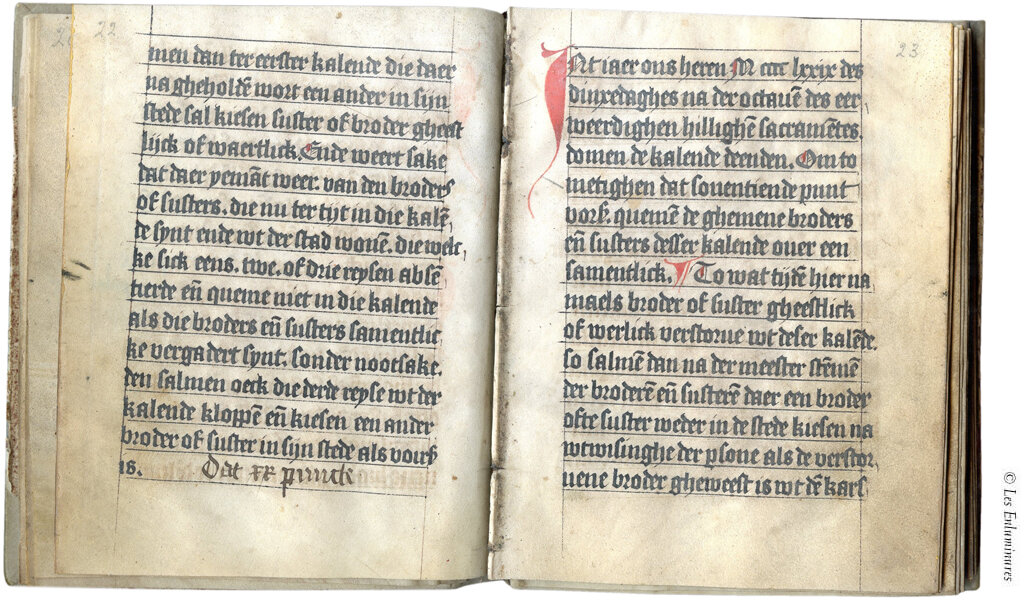 22
men dan ter eerster kalende die daer
na gheholdē wort een ander in sijn
stede sal kiesen suster of broder gheest
lijck of waertlick. Ende weert sake
dat daer yemāt weer. van den broders
of susters. die nu ter tijt in die kalē,
de synt ende wt der stad wonē. die welc,
ke sick eens. twe. of drie reysen absē
tierde eñ queme niet in die kalende
als die broders eñ susters samentlic
ke vergadert synt. sonder nootsake.
den salmen oeck die derde reyse wt der
kalende kloppē eñ kiesen een ander
broder of suster in sijn stede als voirs
is. Dat xx punck
23
Int iaer ons heren M cccc lxxix des
dinxedaghes na der octauē des eer,
weerdighen hillighē sacramētes.
domen de kalende deenden. Om to
metighen dat souentiende punt
vors. quemē de ghemene broders
eñ susters desser kalende ouer een
samentlick. To wat tijdē hier na
maels broder of suster gheestlick
of werlick verstorue wt deser kalēde.
so salmē dan na der meester stēmē
der broderē eñ susterē daer een broder
ofte suster weder in de stede kiesen na
wtwisinghe der psone als de verstor,
uene broder gheweest is wt dē kars,
© Les Enluminures